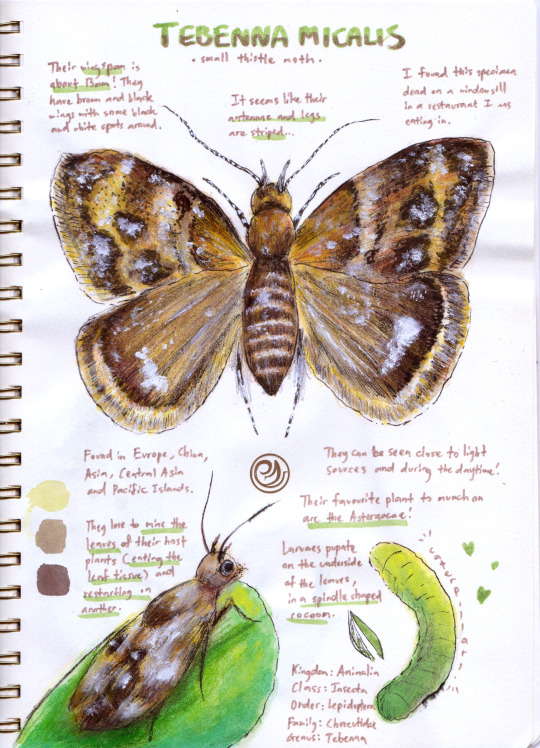 TEBENNA MICALIS
· small thistle moth ·
Their wingspan is
about 13mm! They
have brown and black
wings with some black
and white spots around.
It seems like their
antennae and legs
are striped...
I found this specimen
dead on a windowsill
in a restaurant I was
eating in.
Found in Europe, China,
Asia, Central Asia
and Pacific Islands.
They can be seen close to light
sources and during the daytime!
Their favourite plant to munch on
are the Asteraceae!
They love to mine the
leaves of their host
plants (eating the
leaf tissue) and
restarting in
another.
Larvaes pupate
on the underside
of the leaves,
in a spindle shaped
cocoon.
caterpillar!
Kingdom: Animalia
Class: Insecta
Order: Lepidoptera
Family: Choreutidae
Genus: Tebenna